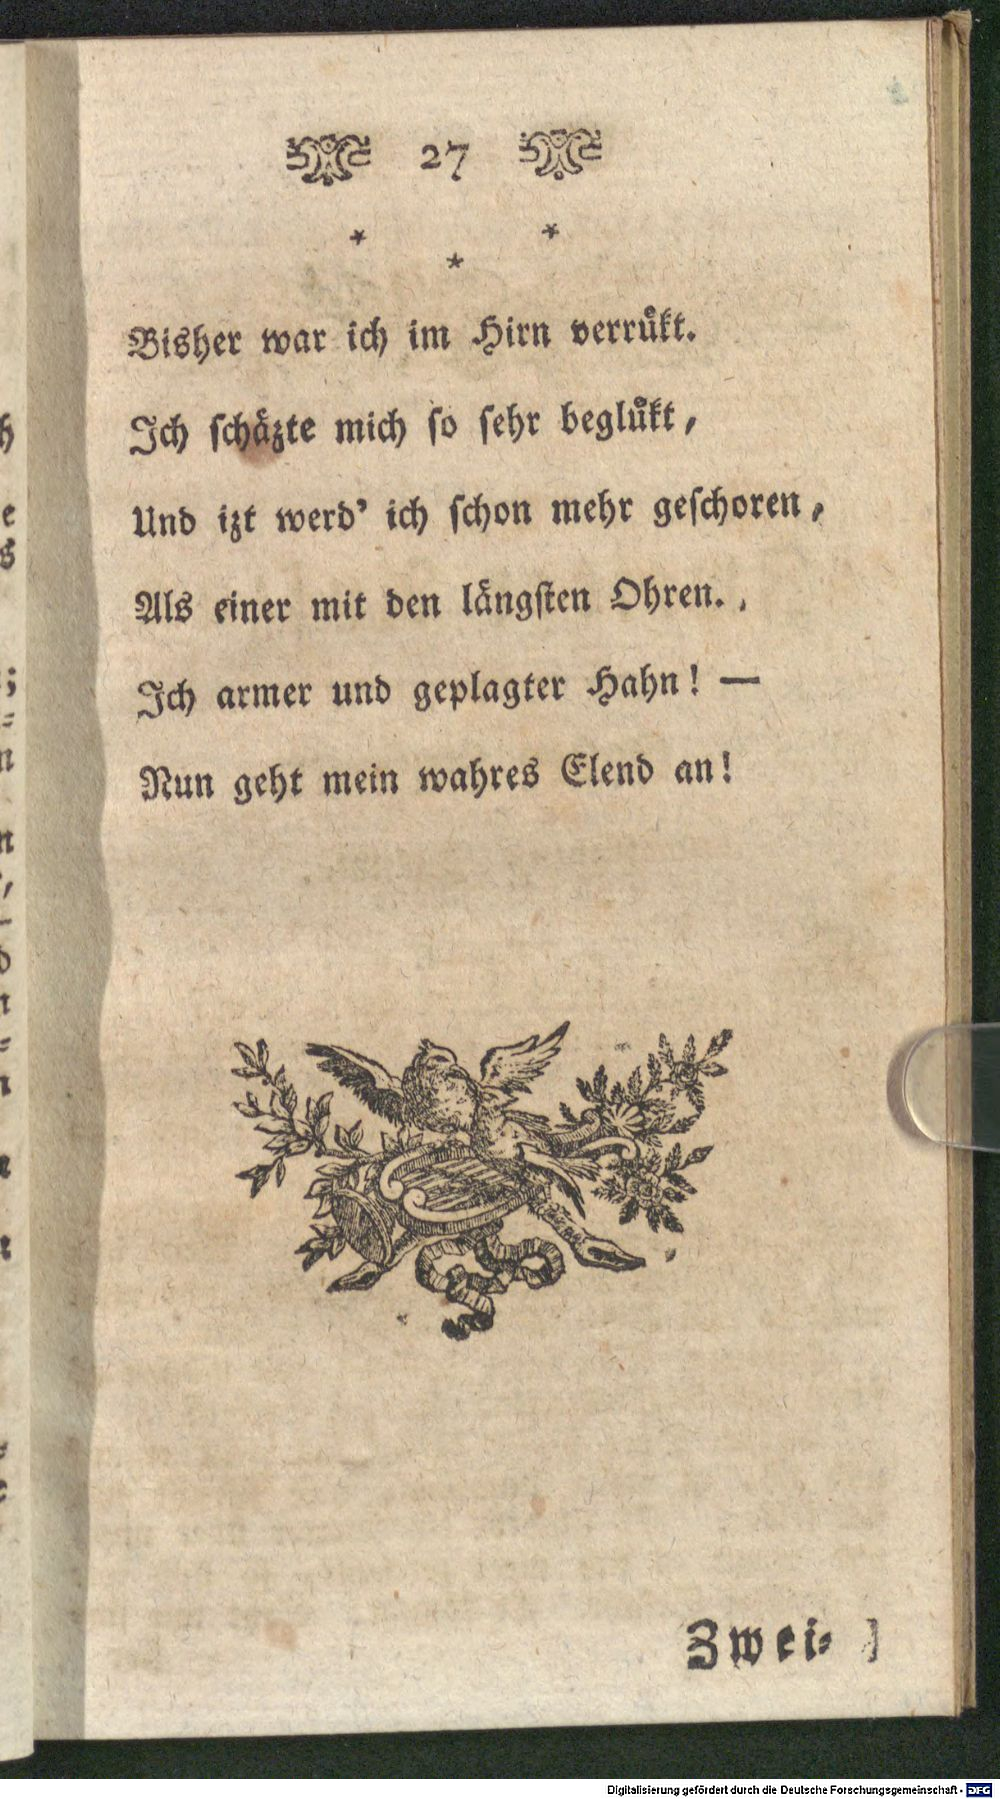 27
* * *
Bisher war ich im Hirn verruͤkt.
Ich ſchaͤzte mich ſo ſehr begluͤkt,
Und izt werd' ich ſchon mehr geſchoren,
Als einer mit den laͤngſten Ohren.
Ich armer und geplagter Hahn! —
Nun geht mein wahres Elend an!
Zwei⸗
Digitalisierung gefördert durch die Deutsche Forschungsgemeinschaft - DFG